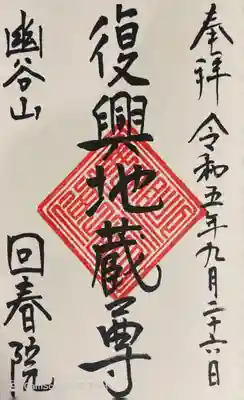 奉拝 令和五年九月二十六日
復興地蔵尊
幽谷山 回春院